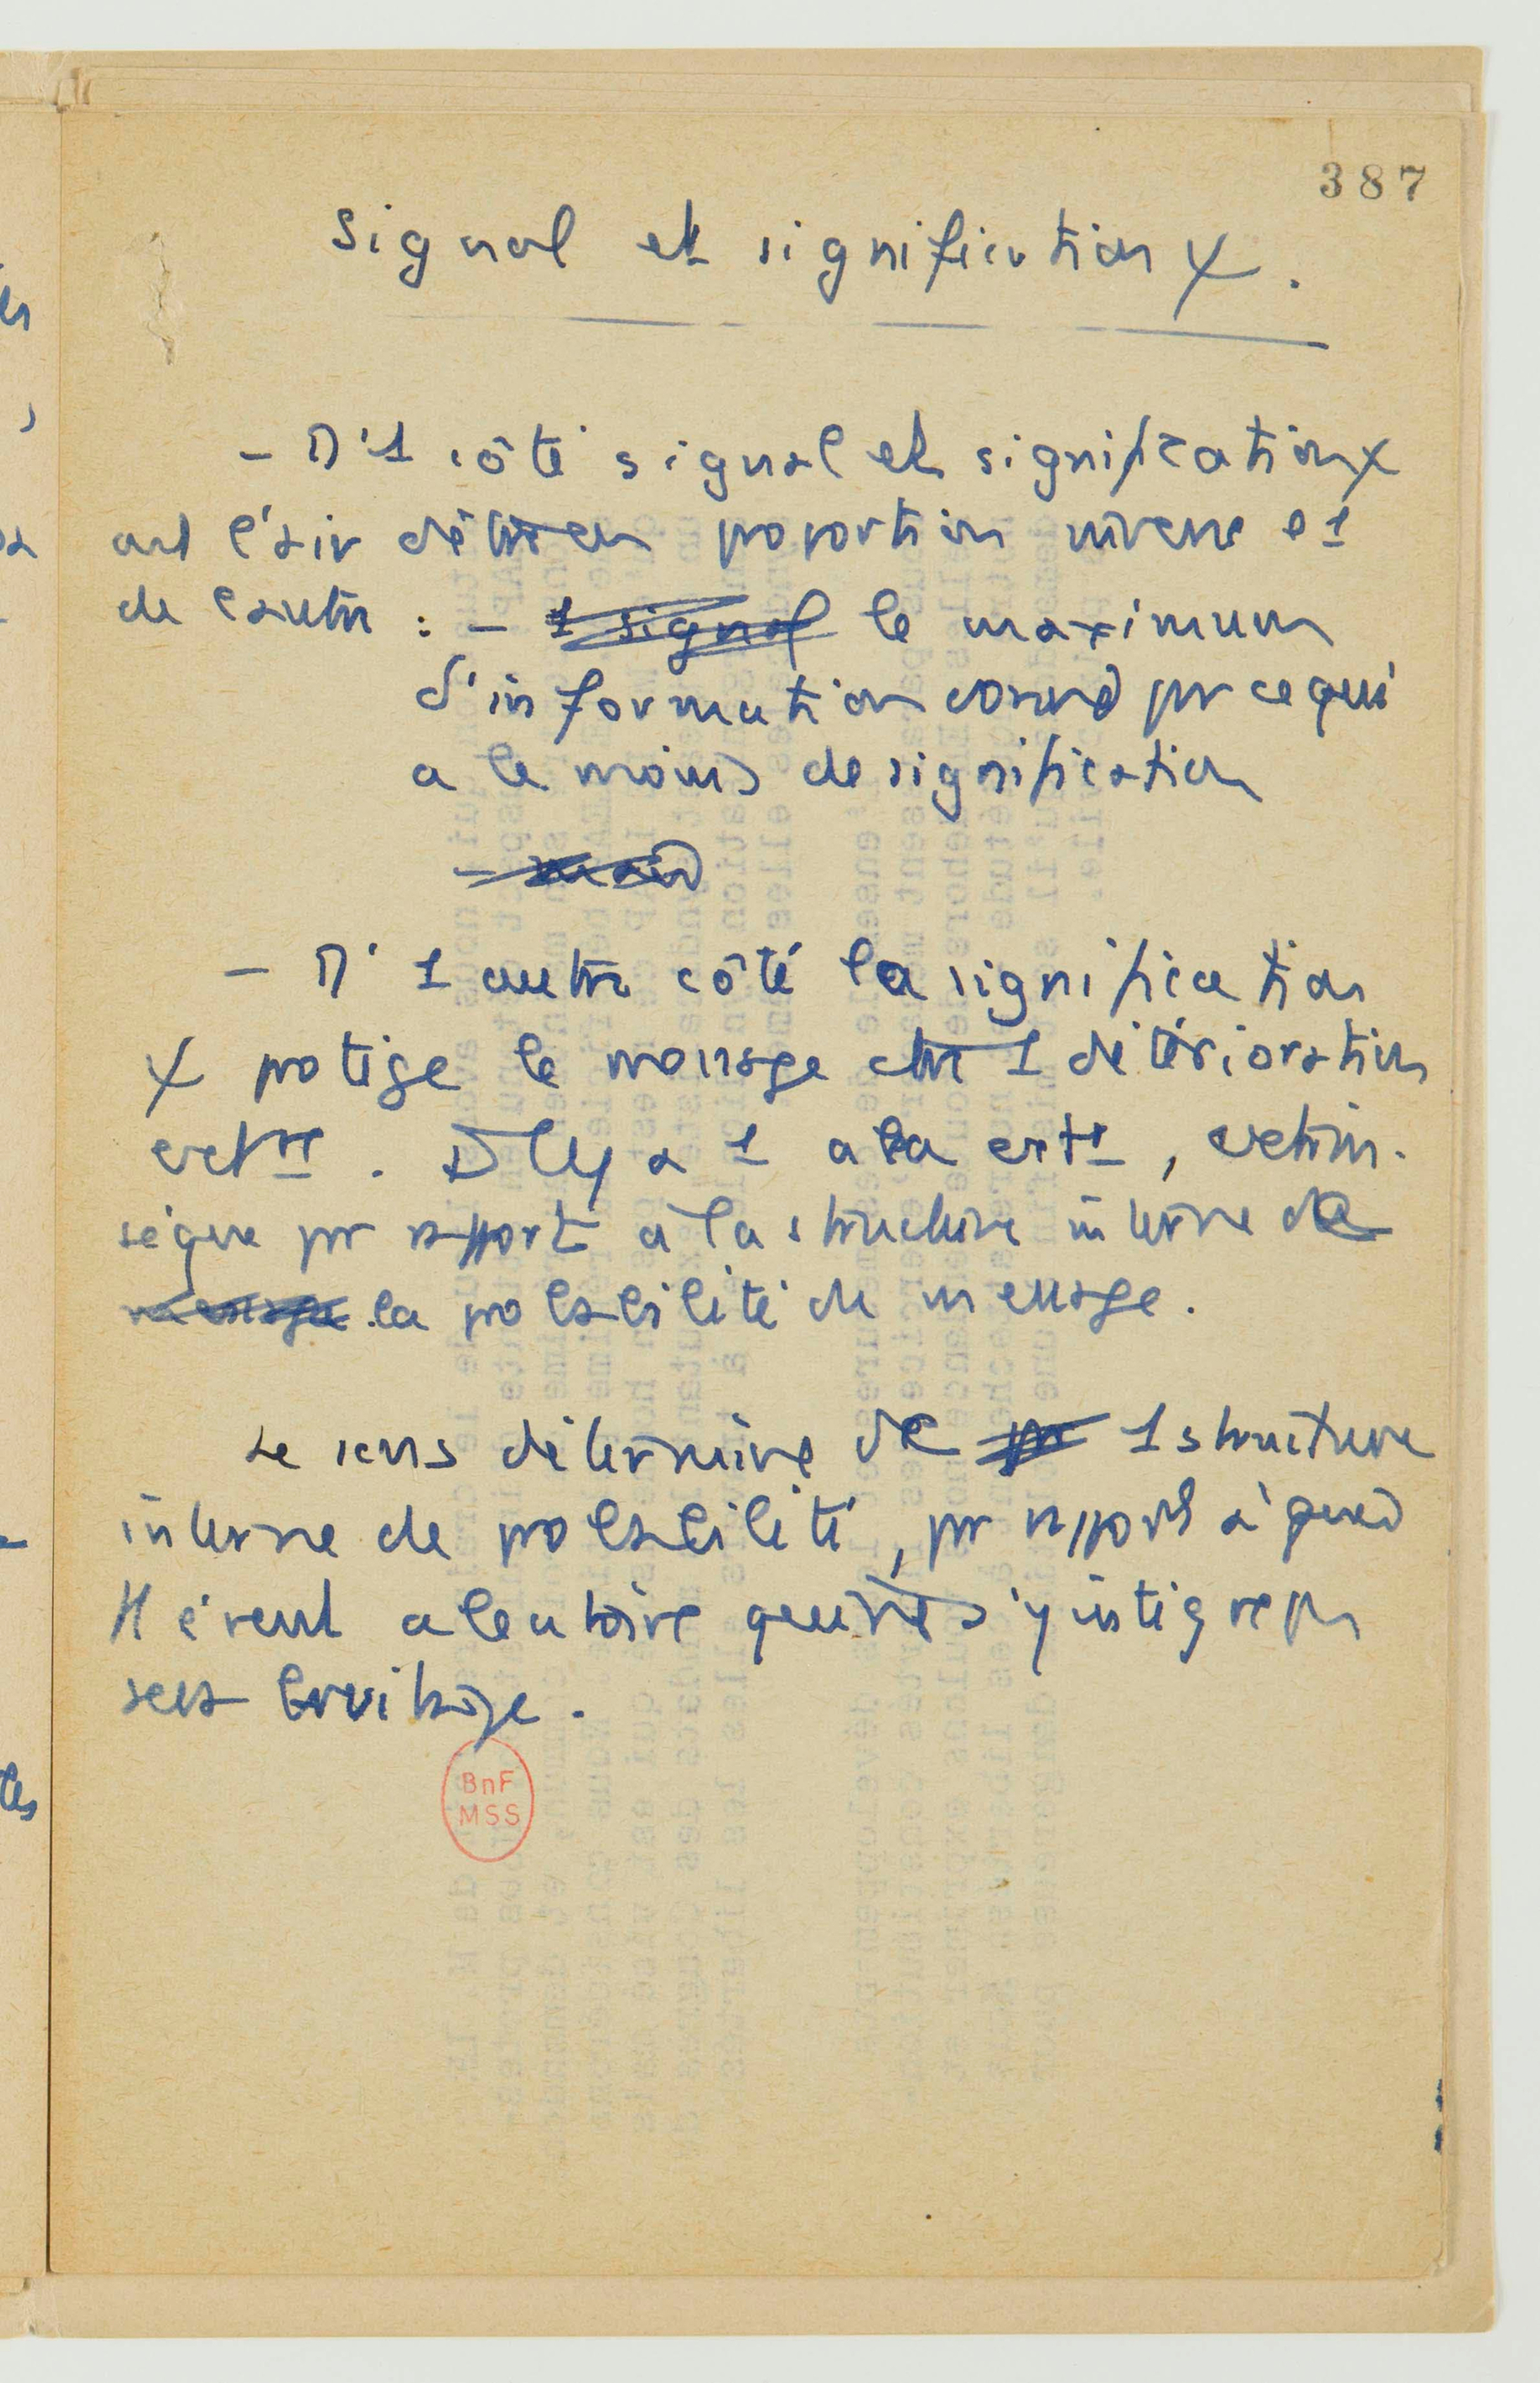 387
Signal et signification X.
- D'1 côté signal et signification X
ont l'air d'être en proportion inverse l'1
de l'autre : - 1 signal le maximum
d'information correspd pr ce qui
a le moins de signification
-
- D'1 autre côté la signification
X protège le message ctre 1 détérioration
. Il y a 1 aléa ext
par rapport à la structure interne de
message la probabilité du message.
Le sens détermine de pr 1 structure
interne de probabilité, pr rapport à quoi
tt évent aléatoire qui s'y intègre pas
sera bruitage.
BnF
MSS